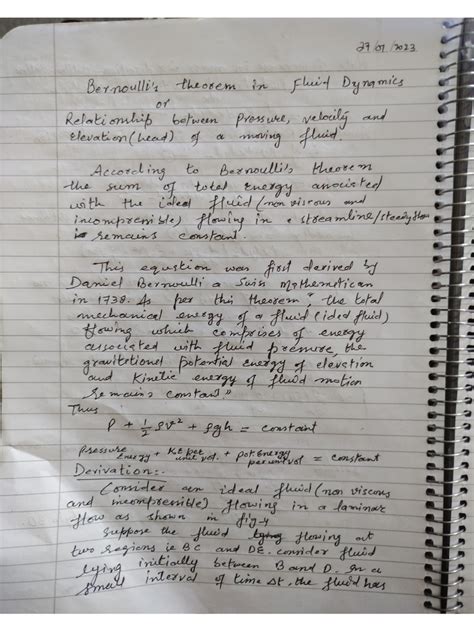 27/01/2023
Bernoulli's theorem in Fluid Dynamics
or
Relationship between Pressure, velocity and
Elevation (head) of a moving fluid.
According to Bernoulli's theorem
the sum of total energy associated
with the ideal fluid (non viscous and
incompressible) flowing in a streamline/steady flow
is remains constant.
This equation was first derived by
Daniel Bernoulli a Swiss Mathematican
in 1738. As per this theorem, "the total
mechanical energy of a fluid (ideal fluid)
flowing which comprises of energy
associated with fluid pressure, the
gravitational potential energy of elevation
and kinetic energy of fluid motion
remains constant"
Thus
P + 1/2 ρv² + ρgh = constant
Pressure energy + K.E per unit vol. + Pot. Energy per unit vol = constant
Derivation:-
Consider an ideal fluid (non viscous
and incompressible) flowing in a laminar
flow as shown in fig-4
Suppose the fluid flowing at
two regions ie BC and DE. consider fluid
lying initially between B and D. In a
small interval of time Δt, the fluid has